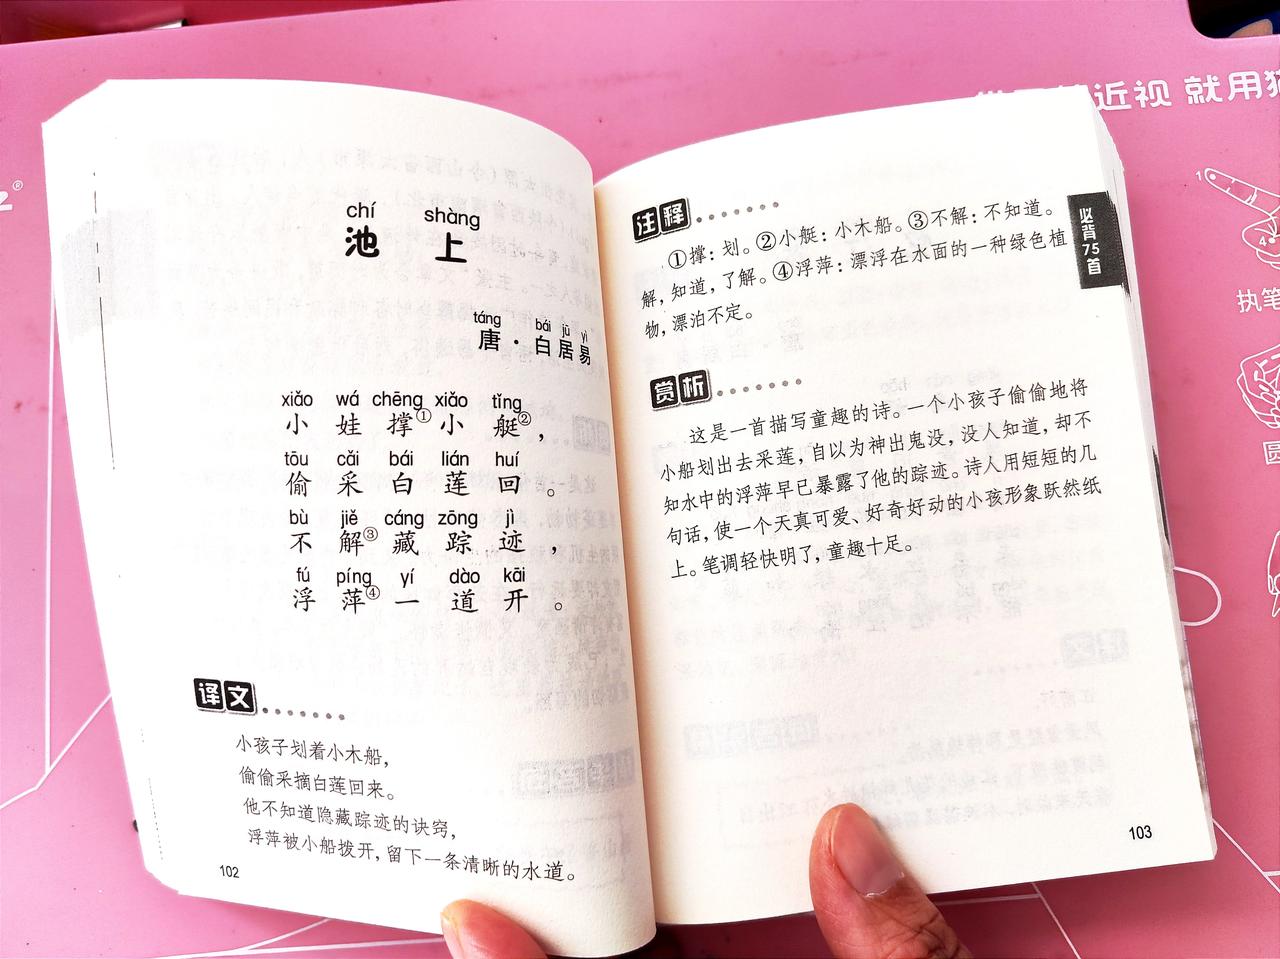 chí shàng
池 上
táng bái jū yì
唐·白居易
xiǎo wá chēng xiǎo tǐng
小娃撑①小艇②，
tōu cǎi bái lián huí
偷采白莲回。
bù jiě cáng zōng jì
不解③藏踪迹，
fú píng yí dào kāi
浮萍④一道开。
译文
小孩子划着小木船，
偷偷采摘白莲回来。
他不知道隐藏踪迹的诀窍，
浮萍被小船拨开，留下一条清晰的水道。
102
注释
①撑：划。②小艇：小木船。③不解：不知道。
解，知道，了解。④浮萍：漂浮在水面的一种绿色植
物，漂泊不定。
赏析
这是一首描写童趣的诗。一个小孩子偷偷地将
小船划出去采莲，自以为神出鬼没，没人知道，却不
知水中的浮萍早已暴露了他的踪迹。诗人用短短的几
句话，使一个天真可爱、好奇好动的小孩形象跃然纸
上。笔调轻快明了，童趣十足。
103
必背75首
近视 就用
1
4
执笔
圆